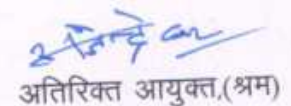 अतिरिक्त आयुक्त,(श्रम)